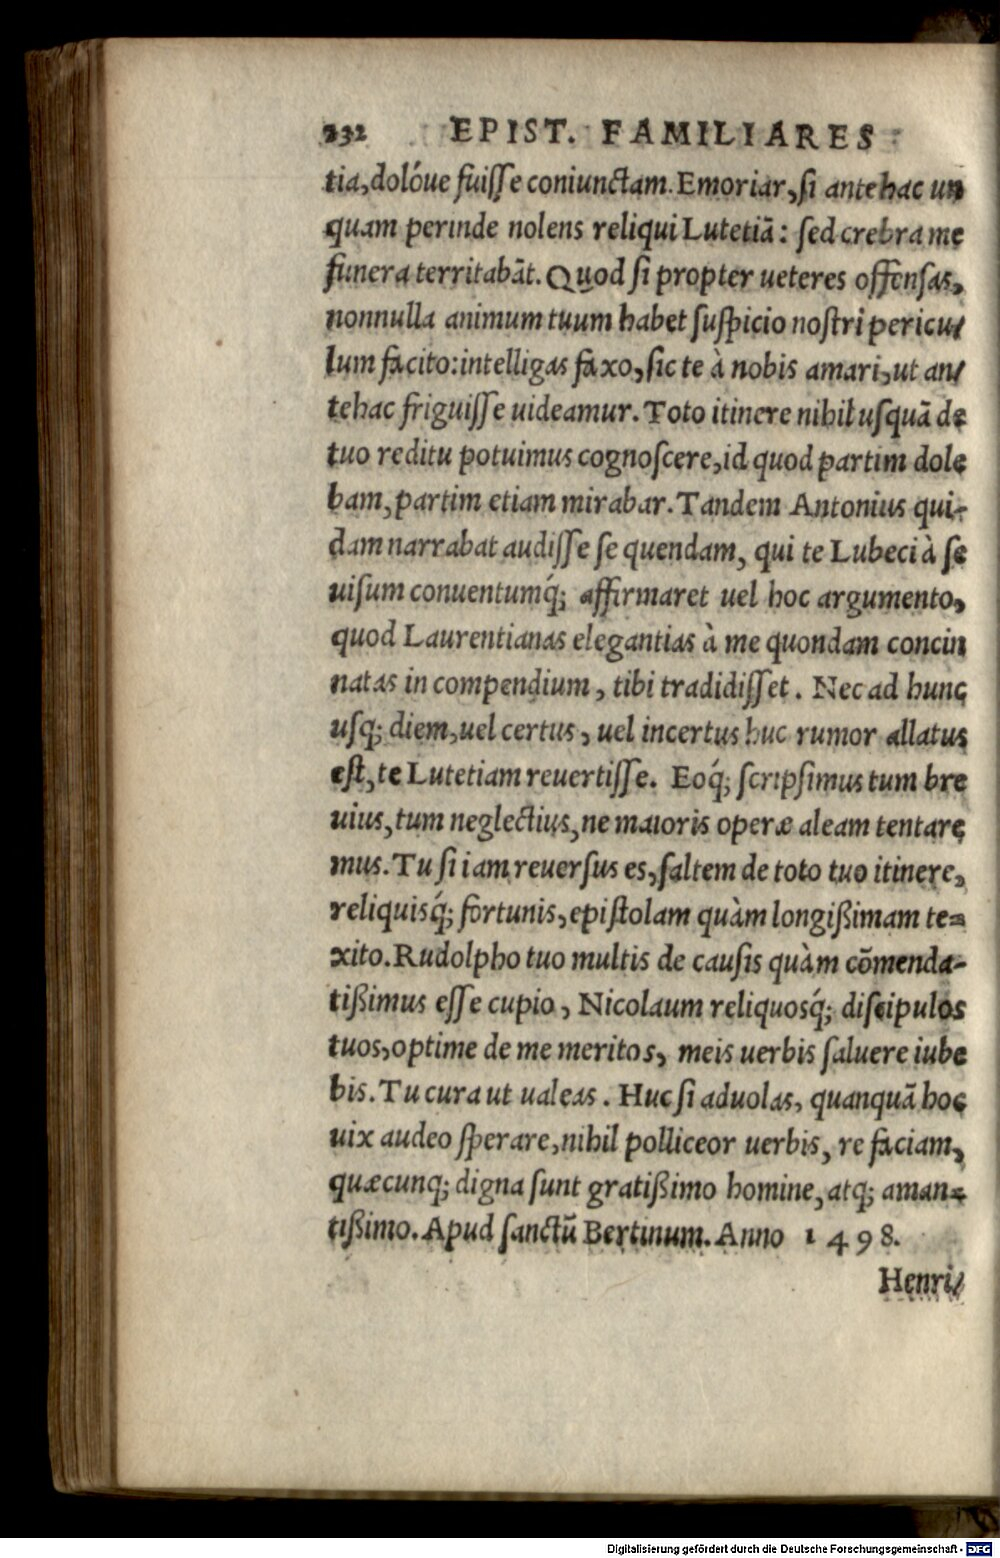 232 EPIST. FAMILIARES
tia, dolóue fuisse coniunctam. Emoriar, si antehac un
quam perinde nolens reliqui Lutetiã: sed crebra me
funera territabãt. Quod si propter ueteres offensas,
nonnulla animum tuum habet suspicio nostri pericu/
lum facito: intelligas faxo, sic te à nobis amari, ut an/
tehac friguisse uideamur. Toto itinere nihil usquã de
tuo reditu potuimus cognoscere, id quod partim dole
bam, partim etiam mirabar. Tandem Antonius qui-
dam narrabat audisse se quendam, qui te Lubeci à se
uisum conuentumq́; affirmaret uel hoc argumento,
quod Laurentianas elegantias à me quondam concin
natas in compendium, tibi tradidisset. Nec ad hunc
usq; diem, uel certus, uel incertus huc rumor allatus
est, te Lutetiam reuertisse. Eoq́; scripsimus tum bre
uius, tum neglectius, ne maioris operæ aleam tentare
mus. Tu si iam reuersus es, saltem de toto tuo itinere,
reliquisq́; fortunis, epistolam quàm longißimam te=
xito. Rudolpho tuo multis de causis quàm cõmenda-
tißimus esse cupio, Nicolaum reliquosq́; discipulos
tuos, optime de me meritos, meis uerbis saluere iube
bis. Tu cura ut ualeas. Huc si aduolas, quanquã hoc
uix audeo sperare, nihil polliceor uerbis, re faciam,
quæcunq; digna sunt gratißimo homine, atq; aman=
tißimo. Apud sanctũ Bertinum. Anno 1498.
Henri/
Digitalisierung gefördert durch die Deutsche Forschungsgemeinschaft - DFG